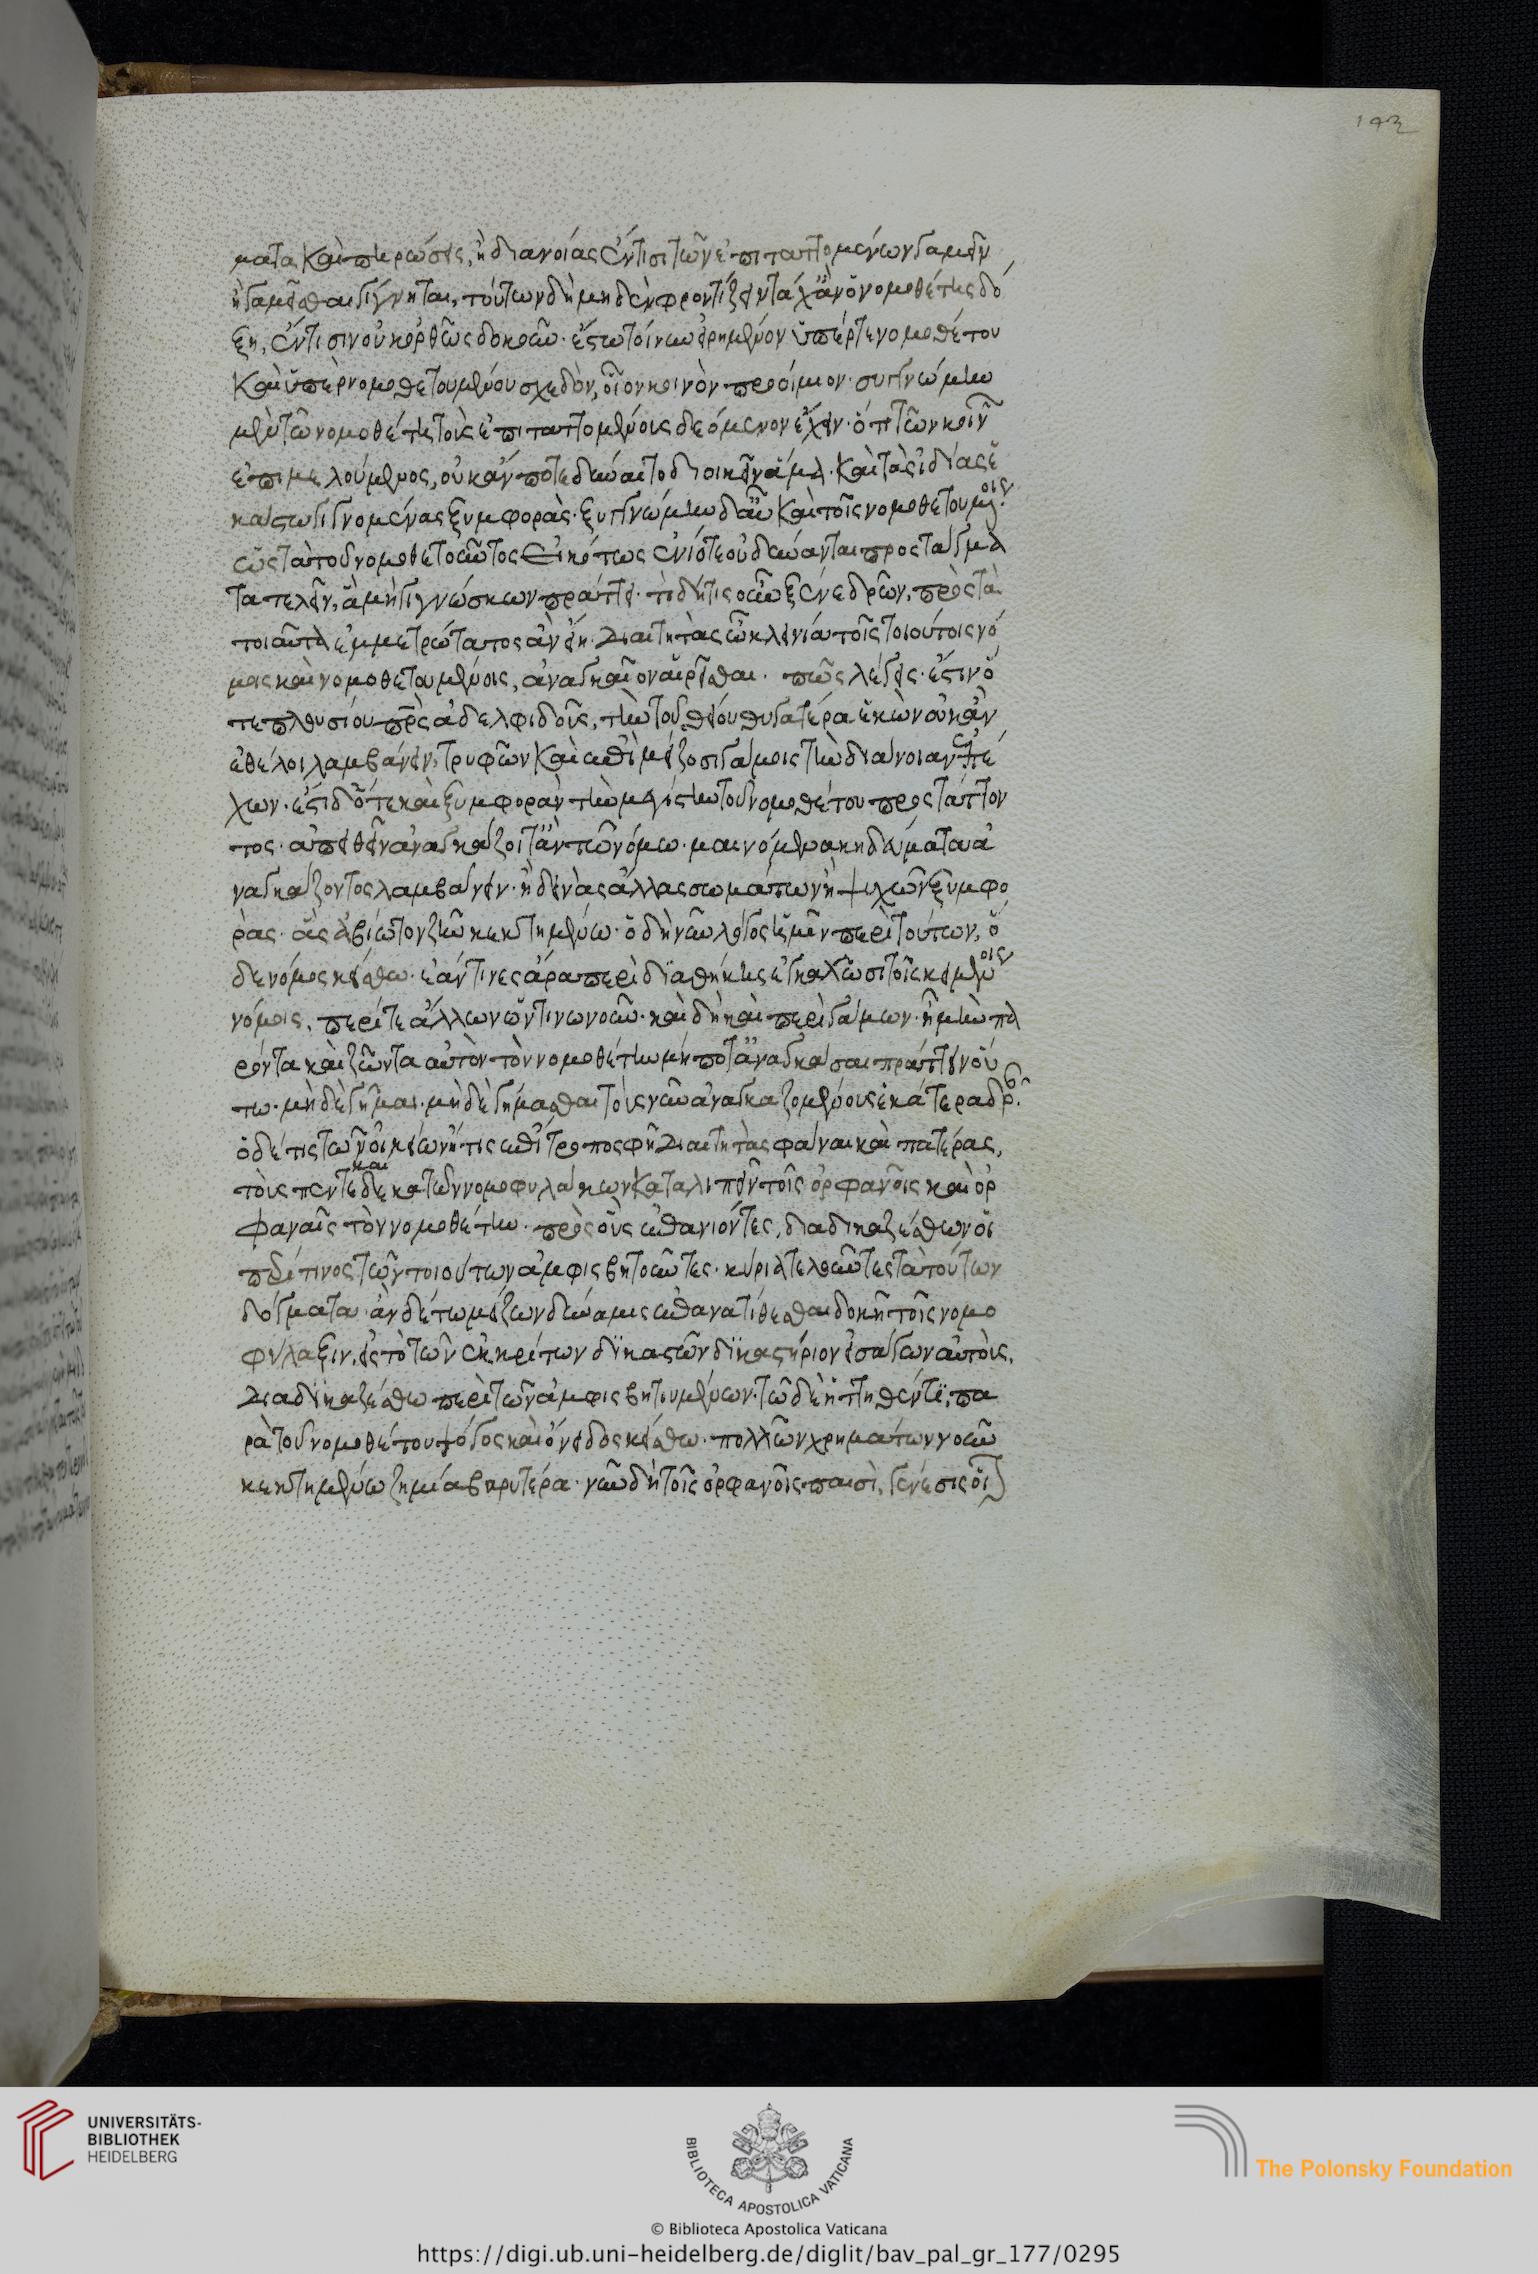 ματα καὶ πηρώσεις, ἢ διανοίας ἐν τισι τῶν ἐπιταττομένων γαμεῖν
ἢ γαμεῖσθαι γίγνηται, τούτων δὴ μηδὲν φροντίζειν τάχ' ἂν ὁ νομοθέτης δό
ξη, ἐν τισιν οὐκ ὀρθῶς δοκοῦν· ἔστω τοίνυν εἰρημένον ὑπέρ τε νομοθέτου
καὶ ὑπὲρ νομοθετουμένου σχεδὸν, οἷον κοινὸν προοίμιον· συγγνώμην
μὲν τῶ νομοθέτη τοῖς ἐπιταττομένοις δεόμενον ἔχειν· ὅτι τῶν κοινῶν
ἐπιμελούμενος, οὐκ ἄν ποτε δύναιτο διοικεῖν ἅμα· καὶ τὰς ἰδίας ἑ
κάστω γιγνομένας ξυμφοράς· ξυγγνώμην δ' αὖ καὶ τοῖς νομοθετουμένοις·
ὡς τὰ τοῦ νομοθετοῦντος εἰκότως ἐνίοτε οὐ δύνανται προστάγμα
τα τελεῖν, ἃ μὴ γιγνώσκων πράττει· τί δή τις οὖν ξένε δρῶν, πρὸς τὰ
τοιαῦτα ἐμμετρότατος ἂν εἴη· διαιτητὰς ὦ κλεινία τοῖς τοιούτοις νό
μοις καὶ νομοθετουμένοις, ἀναγκαῖον αἱρεῖσθαι· πῶς λέγεις· ἔστιν ὅ
τε πλουσίου πρὸς ἀδελφιδοῦς, τὴν τοῦ θείου θυγατέρα ἑκὼν οὐκ ἂν
ἐθέλοι λαμβάνειν, τρυφῶν καὶ ἐπὶ μείζοσι γάμοις τὴν διάνοιαν ἐπέ
χων· ἔστι δ' ὅτε καὶ ξυμφορὰν τὴν μεγίστην τοῦ νομοθέτου προστάττον
τος· ἀπειθεῖν ἀναγκάζοιτ' ἂν τῶ νόμω· μαινόμενα κηδεύματα ἀ
ναγκάζοντος λαμβάνειν· ἢ δεινὰς ἄλλας σωμάτων ἢ ψυχῶν ξυμφο
ράς· ἃς ἀβίωτον ζῆν κεκτημένω· ὁ δὴ νῦν λόγος ἡμῖν περὶ τούτων, ὅ
δε νόμος κείσθω· ἐάν τινες ἄρα περὶ διαθήκης ἐγκαλῶσι τοῖς κειμένοις
νόμοις, περί τε ἄλλων ὧντινων οὖν· καὶ δὴ καὶ περὶ γάμων· ἦ μὴν πα
ρόντα καὶ ζῶντα αὐτὸν τὸν νομοθέτην μή ποτ' ἀναγκάσαι πράττειν οὕ
τω· μὴ δὲ γῆμαι· μὴ δὲ γήμασθαι τοὺς νῦν ἀναγκαζομένους ἑκάτερα δρᾶν.
ὁ δέ τις τῶν οἰκείων ἤ τις ἐπίτροπος φῆ διαιτητὰς φάναι καὶ πατέρας,
τοὺς πεντεκαίδεκα τῶν νομοφυλάκων καταλιπεῖν τοῖς ὀρφανοῖς καὶ ὀρ
φαναῖς τὸν νομοθέτην· πρὸς οὓς ἐπανιόντες, διαδικαζέσθων οἱ
περί τινος τῶν τοιούτων ἀμφισβητοῦντες· κύρια τελοῦντες τὰ τούτων
δόγματα· ἂν δέ τω μείζων δύναμις ἐπανατίθεσθαι δοκῆ τοῖς νομο
φύλαξιν, εἰς τὸ τῶν ἐκκρίτων δικαστῶν δικαστήριον εἰσάγων αὐτοὺς,
διαδικαζέσθω περὶ τῶν ἀμφισβητουμένων· τῶ δὲ ἡττηθέντι, πα
ρὰ τοῦ νομοθέτου ψόγος καὶ ὄνειδος κείσθω· πολλῶν χρημάτων νοῦν
κεκτημένω ζημία βαρυτέρα· νῦν δὴ τοῖς ὀρφανοῖς παισὶ, γένεσις οἷ
UNIVERSITÄTS-
BIBLIOTHEK
HEIDELBERG
BIBLIOTECA APOSTOLICA VATICANA
© Biblioteca Apostolica Vaticana
The Polonsky Foundation
https://digi.ub.uni-heidelberg.de/diglit/bav_pal_gr_177/0295